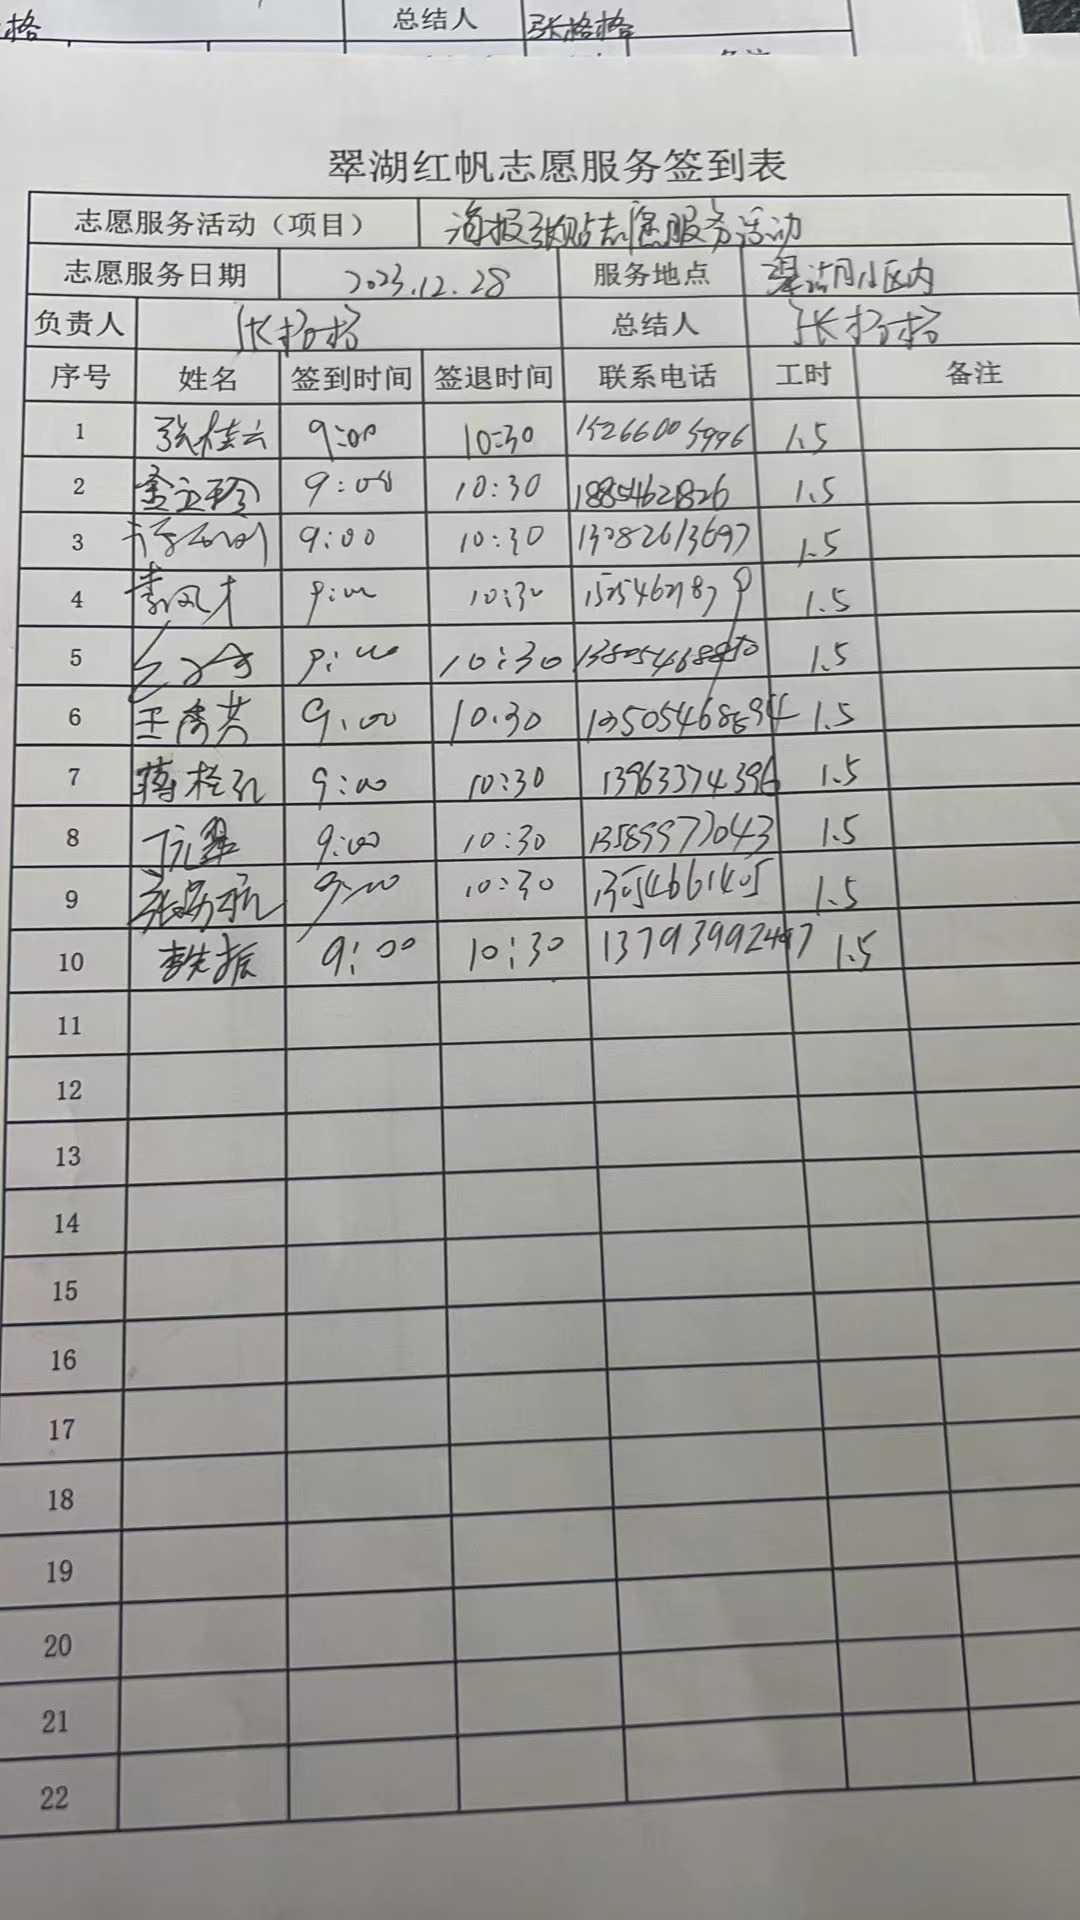 格 总结人 张格格
备注
翠湖红帆志愿服务签到表
志愿服务活动（项目） 海报张贴志愿服务活动
志愿服务日期 2023.12.28 服务地点 翠湖小区内
负责人 张格格 总结人 张格格
序号 姓名 签到时间 签退时间 联系电话 工时 备注
1 张桂云 9:00 10:30 15266005996 1.5
2 9:00 10:30 18854621826 1.5
3 9:00 10:30 1.5
4 李凤才 9:00 10:30 1.5
5 9:00 10:30 1.5
6 王秀芳 9:00 10:30 13505468694 1.5
7 蒋桂孔 9:00 10:30 13963374396 1.5
8 丁元翠 9:00 10:30 13589977043 1.5
9 9:00 10:30 1.5
10 9:00 10:30 13793992497 1.5
11
12
13
14
15
16
17
18
19
20
21
22